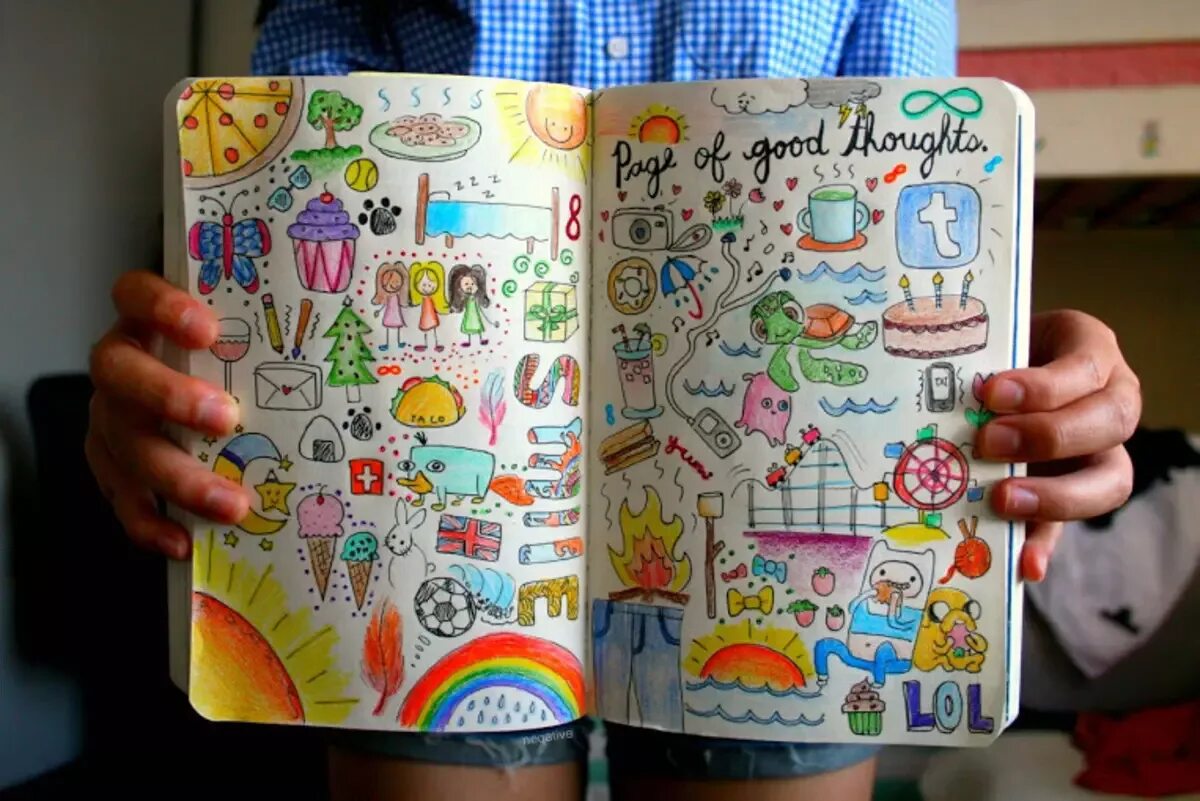 z z z z
TACO
SMILE
negative
Page of good thoughts.
t
yum!
LOL